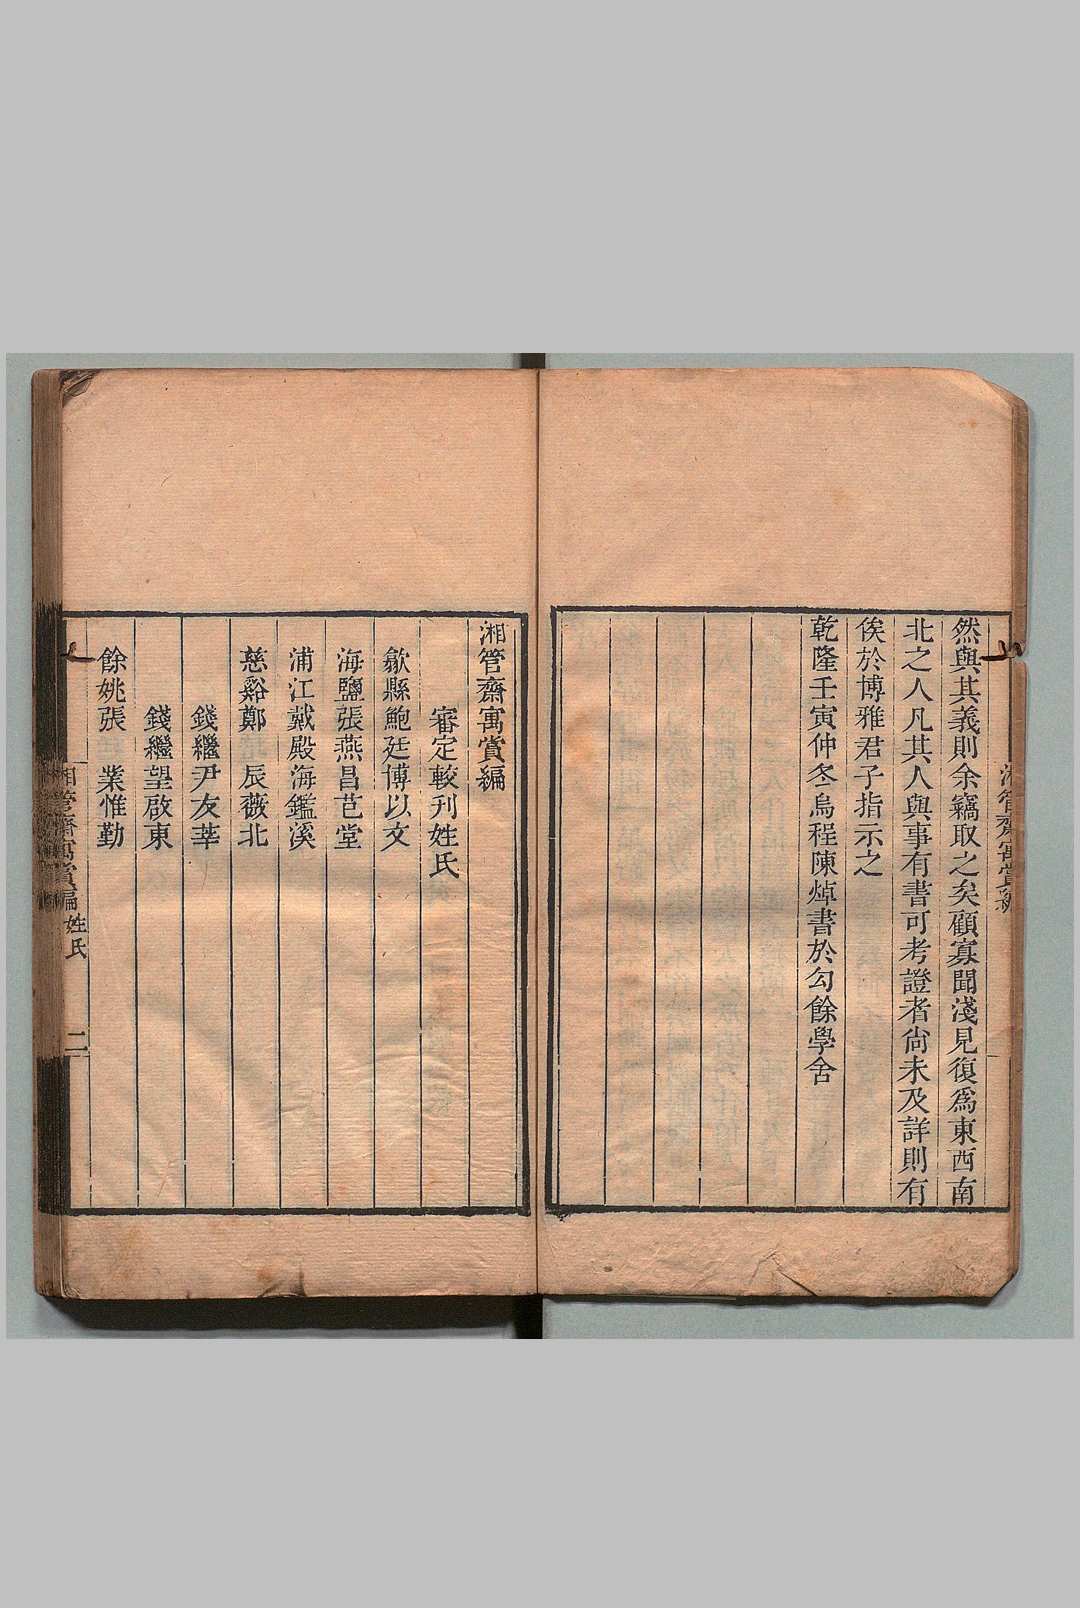 然與其義則余竊取之矣顧寡聞淺見復爲東西南
北之人凡其人與事有書可考證者尙未及詳則有
俟於博雅君子指示之
乾隆壬寅仲冬烏程陳焯書於勾餘學舍
湘管齋寓賞編
審定較刊姓氏
歙縣鮑廷博以文
海鹽張燕昌芑堂
浦江戴殿海鑑溪
慈谿鄭 辰薇北
錢繼尹友莘
錢繼望啟東
餘姚張 業惟勤
湘管齋寓賞編 姓氏 二